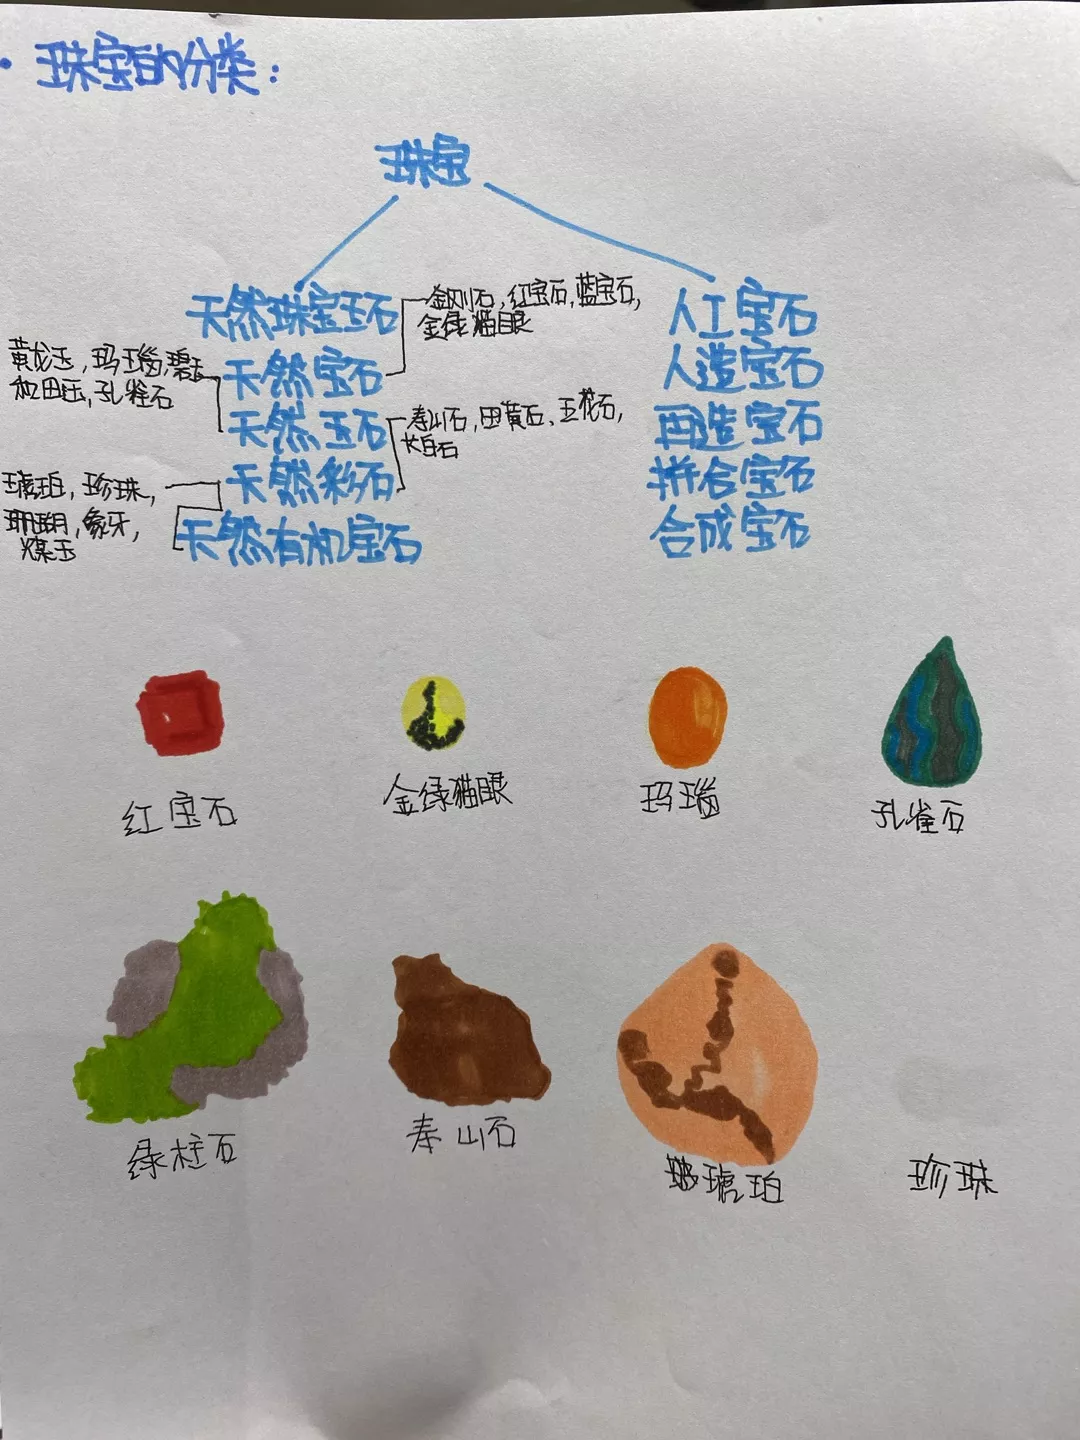 · 珠宝的分类：
珠宝
天然珠宝玉石
金刚石，红宝石，蓝宝石，
金绿猫眼
人工宝石
黄龙玉，玛瑙，碧玉
和田玉，孔雀石
天然宝石
人造宝石
天然玉石
寿山石，田黄石、五花石，
长白石
再造宝石
琥珀，珍珠，
珊瑚，象牙，
煤玉
天然彩石
拼合宝石
天然有机宝石
合成宝石
红宝石
金绿猫眼
玛瑙
孔雀石
绿柱石
寿山石
琥珀
珍珠